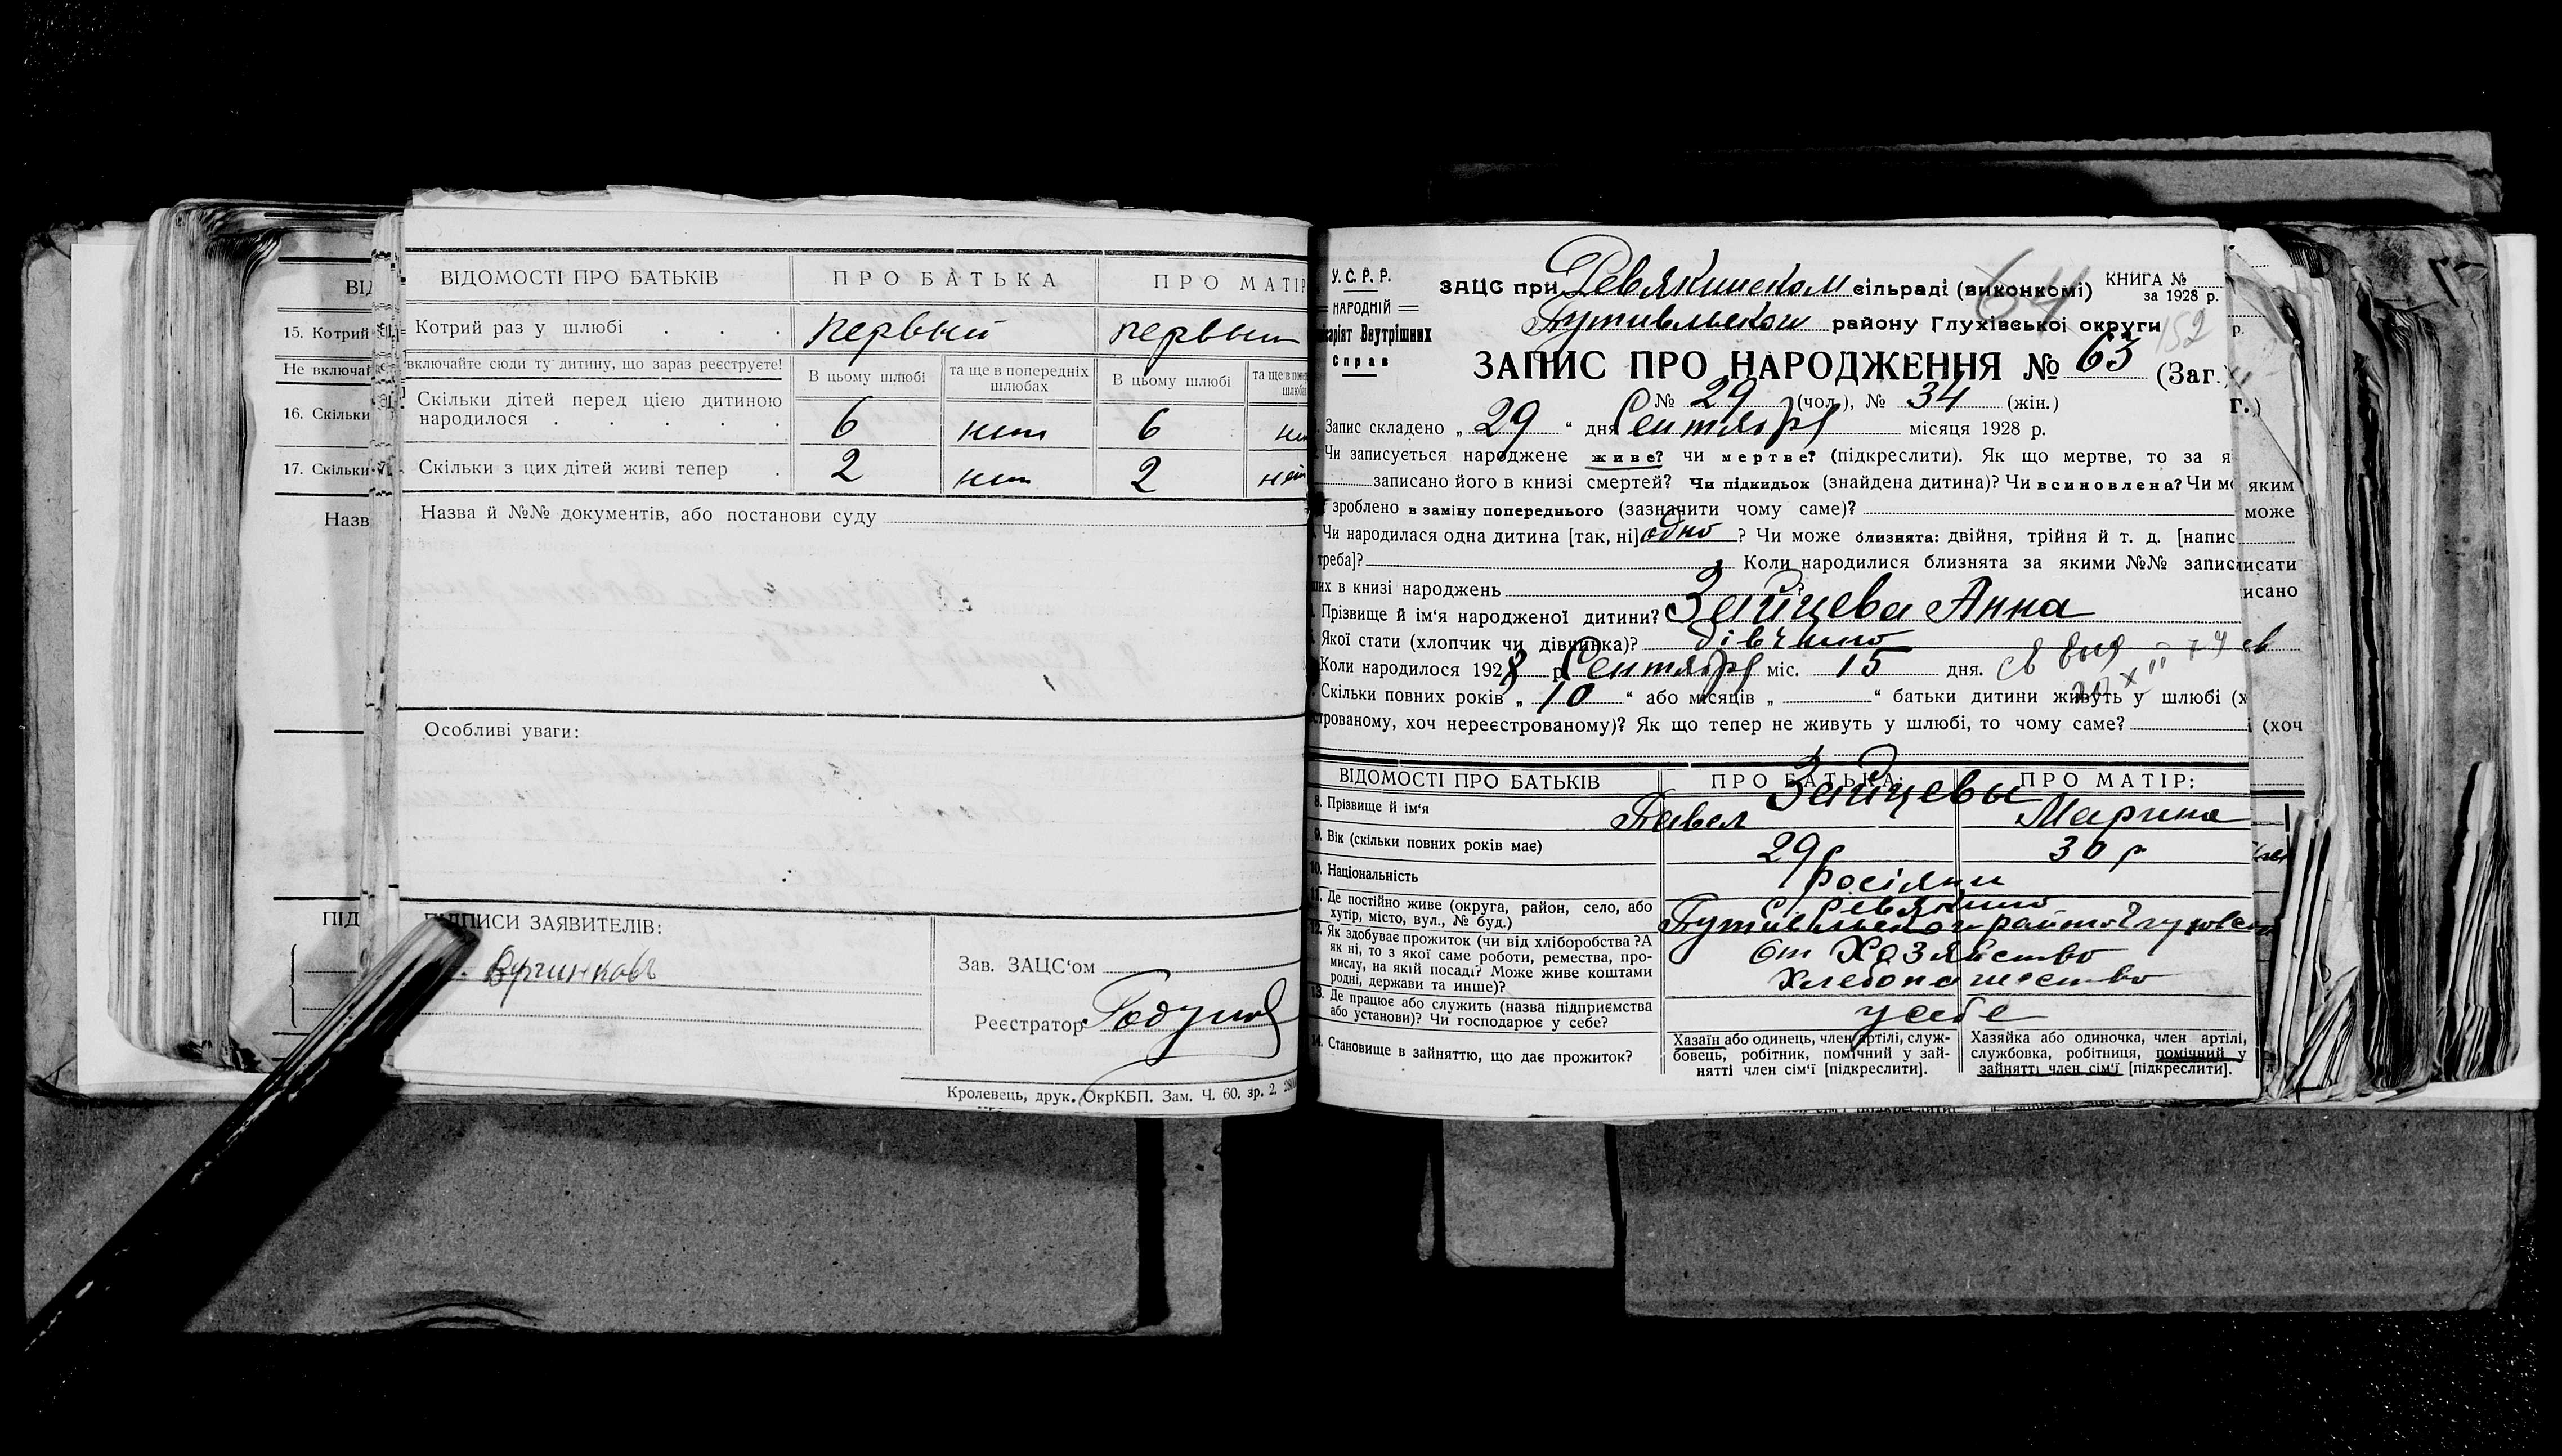 ВІДОМОСТІ ПРО БАТЬКІВ ПРО БАТЬКА ПРО МАТІР
15. Котрий
Котрий раз у шлюбі первый первый
Не включай
включайте сюди ту дитину, що зараз реєструєте!
В цьому шлюбі та ще в попередніх шлюбах В цьому шлюбі
16. Скільки
Скільки дітей перед цією дитиною
народилося 6 нет 6
17. Скільки
Скільки з цих дітей живі тепер 2 нет 2 нет
Назв
Назва й №№ документів, або постанови суду
Особливі уваги:
ПІД
ПІДПИСИ ЗАЯВИТЕЛІВ:
Зав. ЗАЦС'ом
Реєстратор Годунов
Кролевець, друк. ОкрКБП. Зам. Ч. 60. зр. 2.
У.С.Р.Р.
НАРОДНІЙ
Внутрішних
Справ
ЗАЦС при Ревякинском сільраді (виконкомі) КНИГА №
за 1928 р.
64
Путивльского району Глухівської округи
152
ЗАПИС ПРО НАРОДЖЕННЯ № 63 (Заг.)
№ 29 (чол.), № 34 (жін.)
Запис складено „ 29 “ дня Сентября місяця 1928 р.
Чи записується народжене живе? чи мертве? (підкреслити). Як що мертве, то за я
записано його в книзі смертей? Чи підкидьок (знайдена дитина)? Чи всиновлена? Чи мо
яким
зроблено в заміну попереднього (зазначити чому саме)?
може
Чи народилася одна дитина [так, ні] одно ? Чи може близнята: двійня, трійня й т. д. [напис
треба]? Коли народилися близнята за якими №№ запис
исати
их в книзі народжень ?
исано
Прізвище й ім'я народженої дитини? Зайцева Анна
Якої стати (хлопчик чи дівчинка)? дівчино
Коли народилося 1928 р. Сентября міс. 15 дня.
Скільки повних років „ 10 “ або місяців „ “ батьки дитини живуть у шлюбі (х
строваному, хоч нереєстрованому)? Як що тепер не живуть у шлюбі, то чому саме?
(хоч
ВІДОМОСТІ ПРО БАТЬКІВ ПРО БАТЬКА: ПРО МАТІР:
Зайцевы
8. Прізвище й ім'я Павел Марина
9. Вік (скільки повних років має) 29 р 30 р
10. Національність росіяни
11. Де постійно живе (округа, район, село, або
хутір, місто, вул., № буд.)
с. Ревякино
12. Як здобуває прожиток (чи від хліборобства? А
як ні, то з якої саме роботи, ремества, про-
мислу, на якій посаді? Може живе коштами
родні, держави та инше)?
от Хозяйство
Хлебопашество
13. Де працює або служить (назва підприємства
або установи)? Чи господарює у себе?
у себе
14. Становище в зайняттю, що дає прожиток?
Хазаїн або одинець, член артілі, служ-
бовець, робітник, помічний у зай-
нятті член сім'ї [підкреслити].
Хазяйка або одиночка, член артілі,
службовка, робітниця, помічний у
зайнятті член сім'ї [підкреслити].